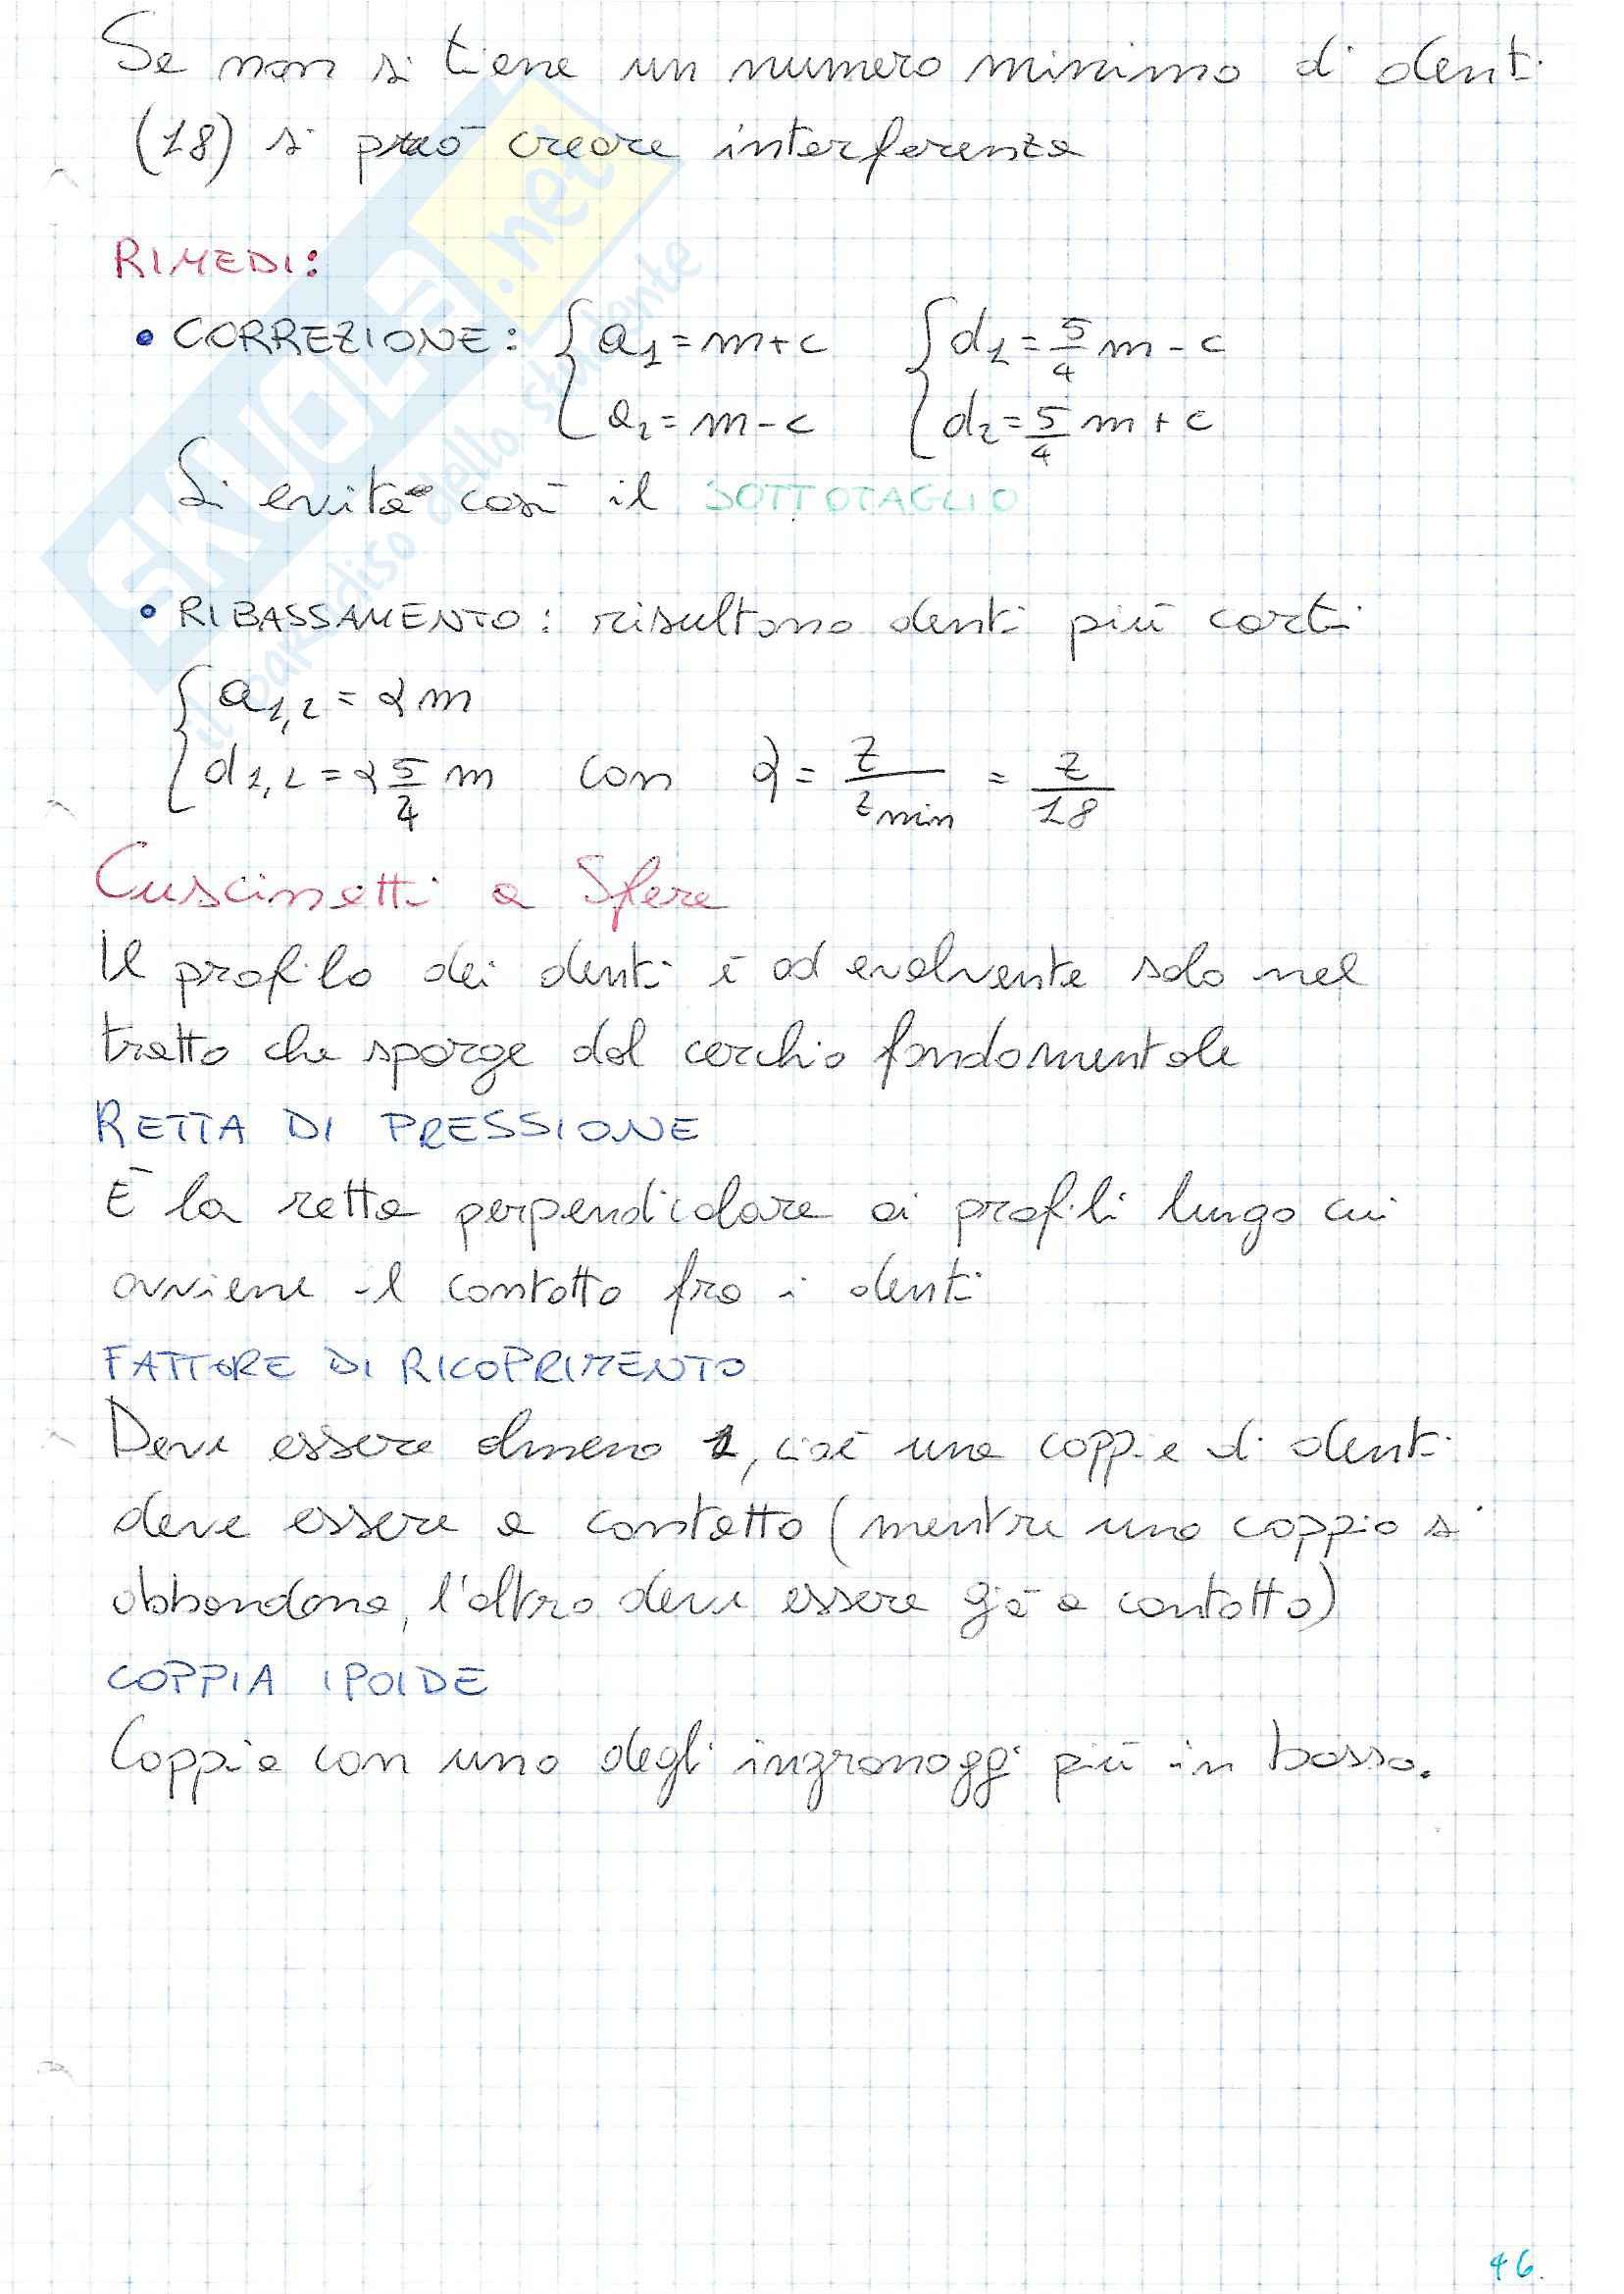 Se non si tiene un numero minimo di denti
(18) si può creare interferenza
RIMEDI:
• CORREZIONE: { a1 = m+c { d1 = 5/4 m - c
a2 = m - c d2 = 5/4 m + c
Si evita così il SOTTOTAGLIO
• RIBASSAMENTO: risultano denti più corti
{ a1,2 = αm
d1,2 = α 5/4 m con α = z/zmin = z/18
Cuscinetti a Sfere
Il profilo dei denti è ad evolvente solo nel
tratto che sporge dal cerchio fondamentale
RETTA DI PRESSIONE
È la retta perpendicolare ai profili lungo cui
avviene il contatto fra i denti
FATTORE DI RICOPRIMENTO
Deve essere almeno 1, cioè una coppia di denti
deve essere a contatto (mentre una coppia si
abbandona, l'altra deve essere già a contatto)
COPPIA IPOIDE
Coppia con uno degli ingranaggi più in basso.
46.
SKUOLA.net
il paradiso dello studente